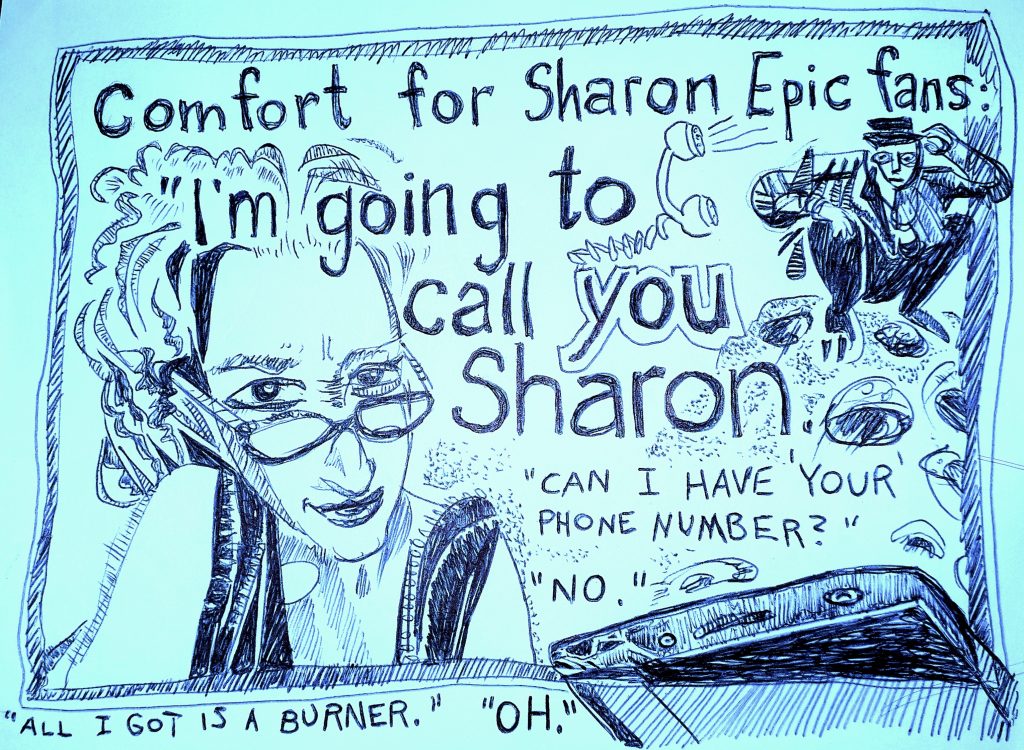 Comfort for Sharon Epic fans:
"I'm going to
call you
Sharon."
"CAN I HAVE 'YOUR'
PHONE NUMBER?"
"NO."
"ALL I GOT IS A BURNER." "OH."